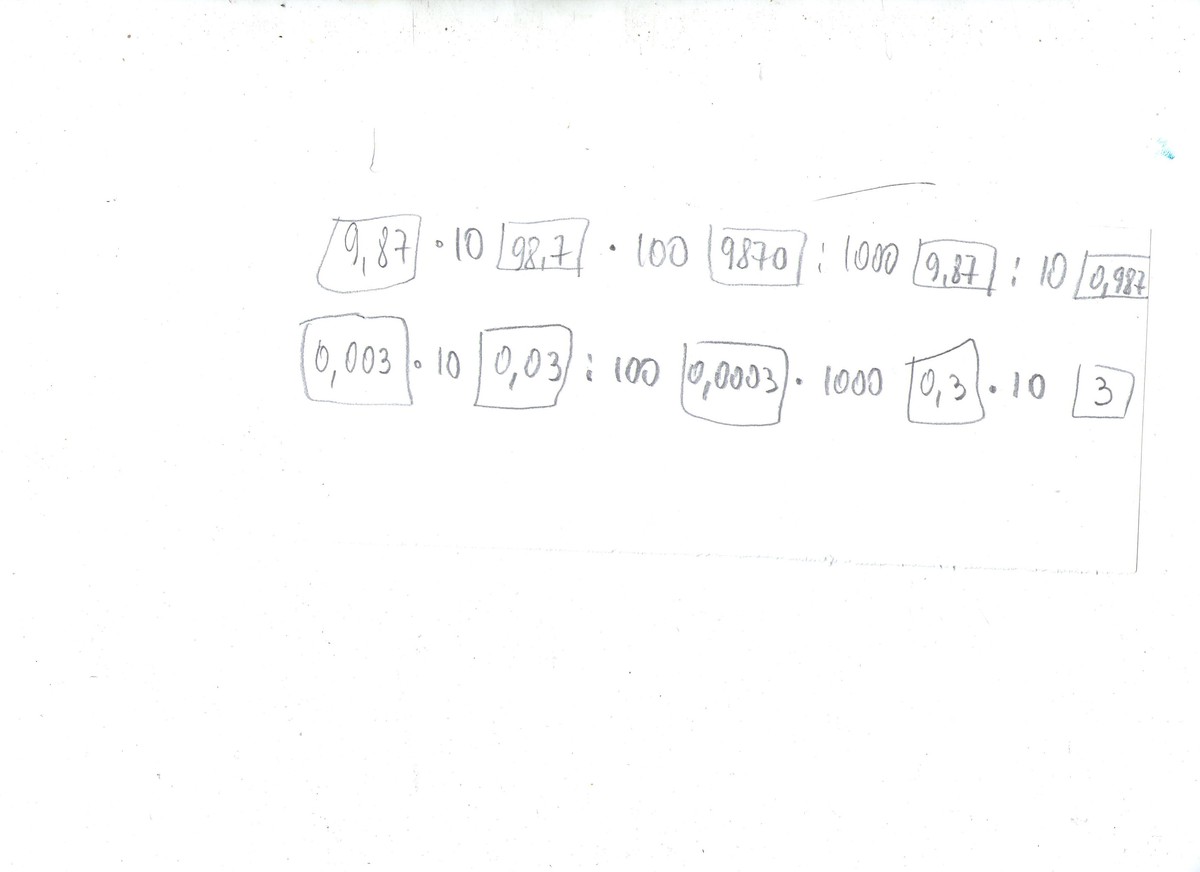 9,87 · 10 98,7 · 100 9870 : 1000 9,87 : 10 0,987
0,003 · 10 0,03 : 100 0,0003 · 1000 0,3 · 10 3